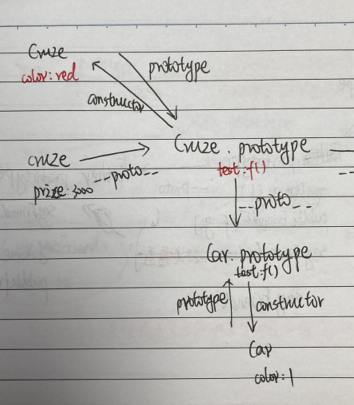 Cruze
color: red
prototype
constructor
cruze
prize: 3000
--proto--
Cruze.prototype
test: f()
--proto--
Car.prototype
test: f()
prototype
constructor
Car
color: 1